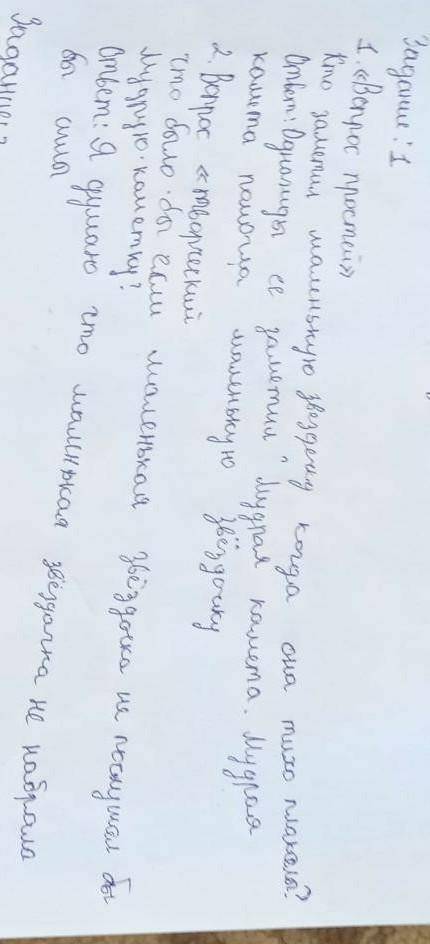 Задание: 1
1. «Вопрос простей»
Кто заметил маленькую звездочку когда она тихо плакалы?
Ответ: Однажды ее заметил Мудрая камета. Мудрая
камета памогла маленькую звёздочку
2. Вопрос «творческий
что было бы если маленькая звёздочка не послушал бы
Мудрую каметку?
Ответ: Я думаю что маленькая звёздачка не набрала
бы силы
Задание: